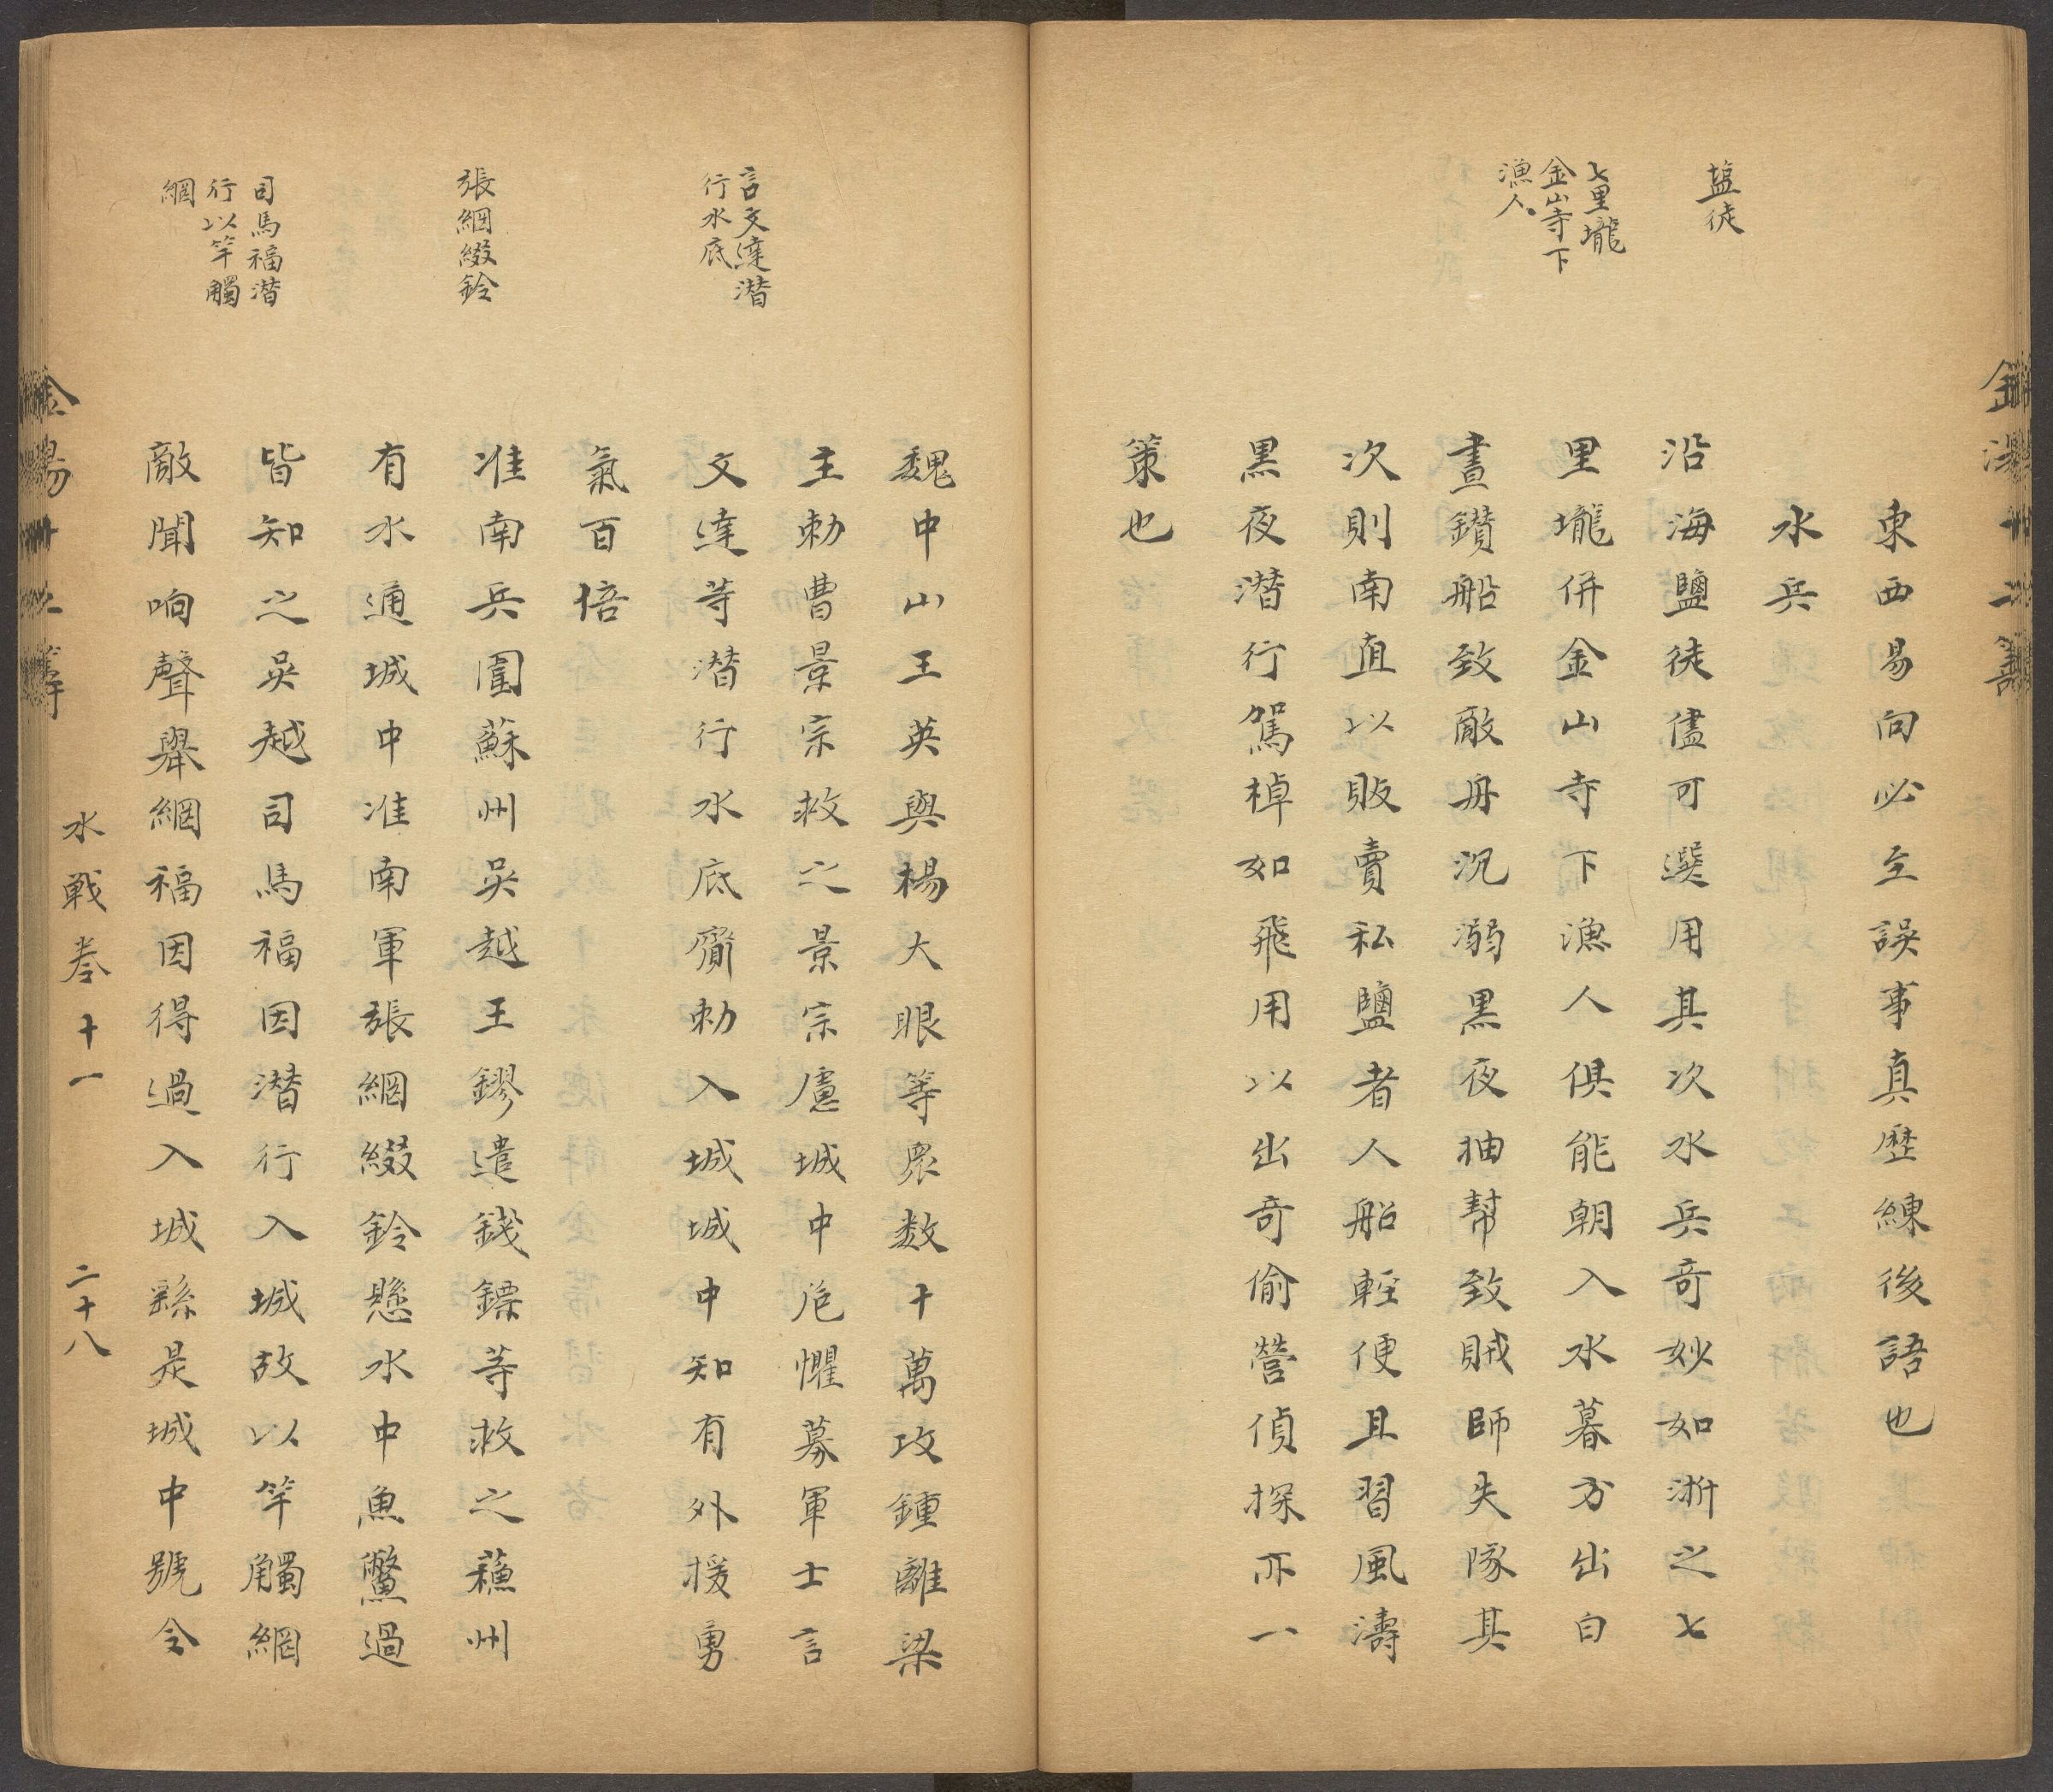 金湯十二籌
塩徒
七里壠
金山寺下
漁人
東西易向必至誤事真歷練後語也
水兵
沿海鹽徒儘可選用其次水兵奇妙如浙之七
里壠併金山寺下漁人俱能朝入水暮方出白
晝鑚船致敵舟沉溺黒夜抽幫致賊師失隊其
次則南直以販賣私鹽者人船輕便且習風濤
黒夜潛行駕棹如飛用以出奇偷營偵探亦一
策也
言文達潛
行水底
張網綴鈴
司馬福潛
行以竿觸
網
魏中山王英與楊大眼等眾数十萬攻鍾離梁
主勅曹景宗救之景宗慮城中危懼募軍士言
文達等潛行水底齎勅入城城中知有外援勇
氣百倍
准南兵圍蘇州吳越王鏐遣錢鏢等救之蘓州
有水通城中准南軍張網綴鈴懸水中魚鱉過
皆知之吳越司馬福因潛行入城故以竿觸網
敵聞响聲舉網福因得過入城繇是城中號令
金湯十二籌
水戰卷十一
二十八